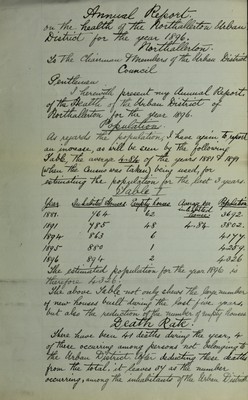 Annual Report.
on the health of the Northallerton Urban
District for the year 1896.
Northallerton.
To The Chairman & Members of the Urban District
Council
Gentlemen
I herewith present my Annual Report
of the Health of the Urban District of
Northallerton for the year 1896.
Population
As regards the population, I have again to report
an increase, as will be seen by the following
Table, the average 4.54 of the years 1881 & 1891
(when the Census was taken) being used, for
estimating the population for the last 3 years.
Table I
Year Inhabited Houses Empty houses Population
1881. 764 62 3692.
1891 785 48 4.54 3802.
1894 863 6
1895 880 1 4259.
1896 894 2 4326
The estimated population for the year 1896 is
therefore 4326.
The above Table not only shews the large number
of new houses built during the last five years
but also the reduction of the number of empty houses
Death Rate.
There have been deaths during the year, 4
of these occurring among persons not belonging to
the Urban District. After deducting these deaths
from the total, it leaves 57 as the number
occurring, among the inhabitants of the Urban District